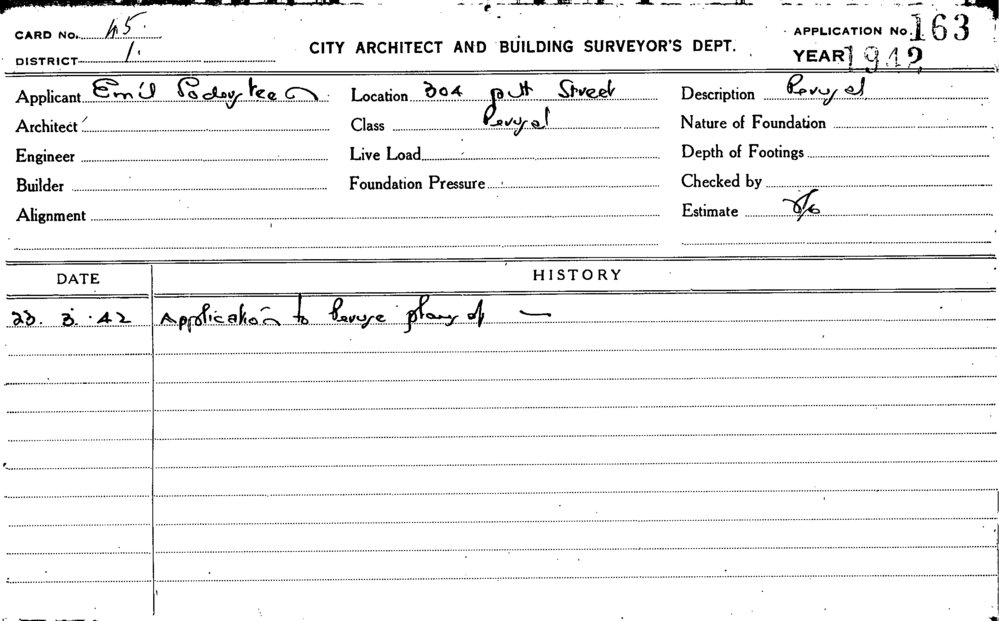 CARD No. 45
APPLICATION No. 163
CITY ARCHITECT AND BUILDING SURVEYOR'S DEPT.
DISTRICT 1.
YEAR 1942
Applicant Emil Location 304 Pitt Street Description Perusal
Architect Class Perusal Nature of Foundation
Engineer Live Load Depth of Footings
Builder Foundation Pressure Checked by
Alignment Estimate
DATE HISTORY
23. 3. 42 Application to Peruse plans of —